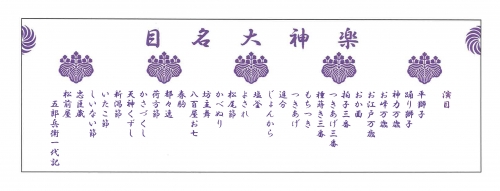 楽神大名目
演目
平獅子
踊り獅子
神力万歳
お峰万歳
お江戸万歳
おか曲
拍子三番
つきあげ三番
種蒔き三番
もちつき
つきあげ
追分
じょんから
塩釜
よされ
松尾節
かべぬり
坊主舞
八百屋お七
春駒
都々逸
荷方節
かさづくし
天神くずし
新潟節
いたこ節
しいない節
忠臣蔵
松前屋
五郎兵衛一代記